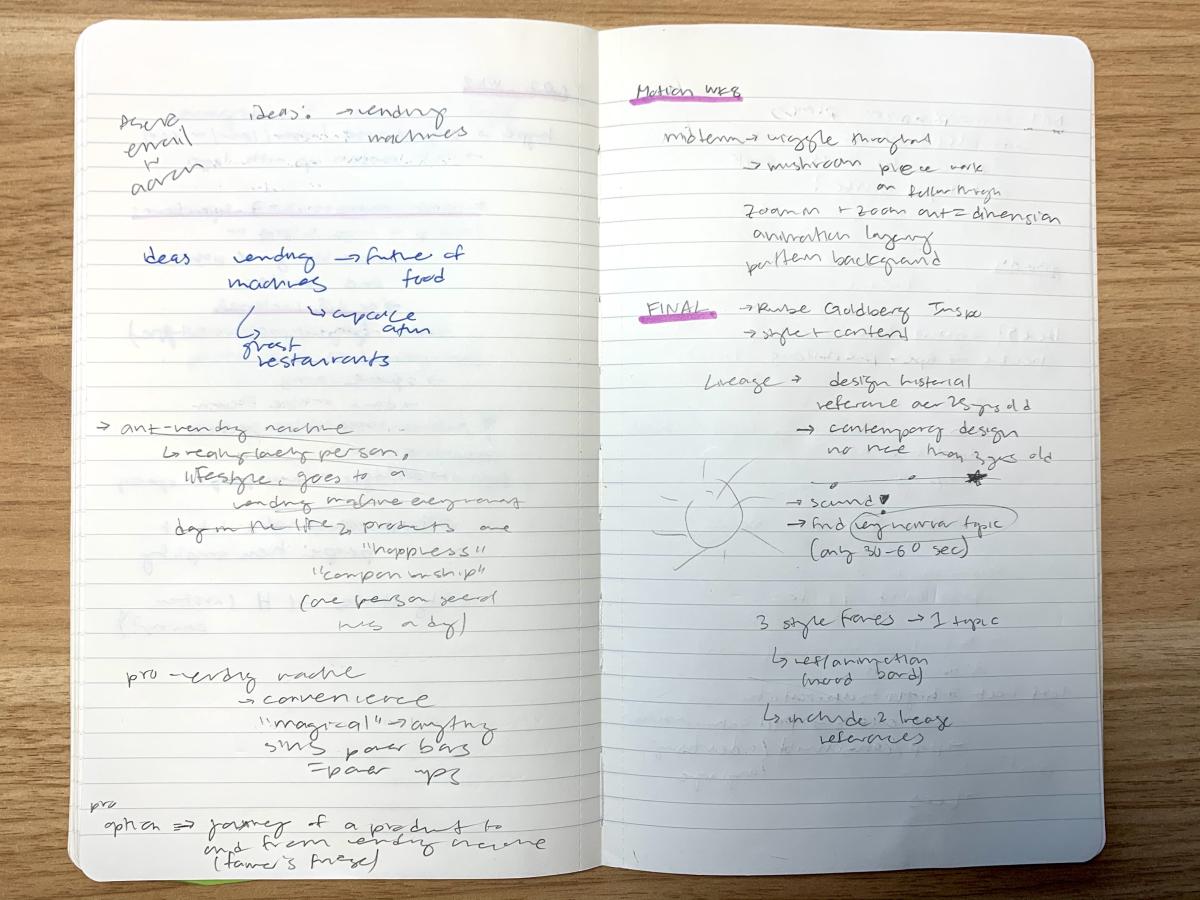 email
ideas: → vending
machines
ideas vending → future of
machines food
↳ cupcake
atm
↳
restaurants
→ ant-vending machine
↳ really lonely person,
lifestyle, goes to a
vending machine every
day in the life, products are
"happiness"
"companionship"
(one person seen
a day)
pro-vending machine
→ convenience
"magical" → anything
sims power bars
= power ups
pro
option ⇒ journey of a product to
and from vending machine
(farmer's fridge)
Motion WK8
midterm → wiggle throughout
→ mushroom piece work
on follow through
zoom in + zoom out = dimension
animation layering
pattern background
FINAL → Rube Goldberg Inspo
→ style + content
Lineage → design historical
reference over 25 yrs old
→ contemporary design
no more than 3 yrs old
→ sound
→ find topic
(only 30-60 sec)
3 style frames → 1 topic
↳ ref/animation
(mood board)
↳ include 2 lineage
references